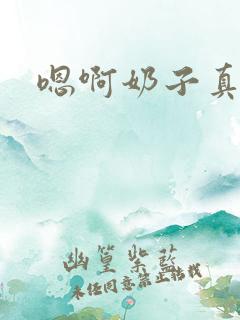 嗯啊奶子真
幽篁紫藍
未经同意禁止转载